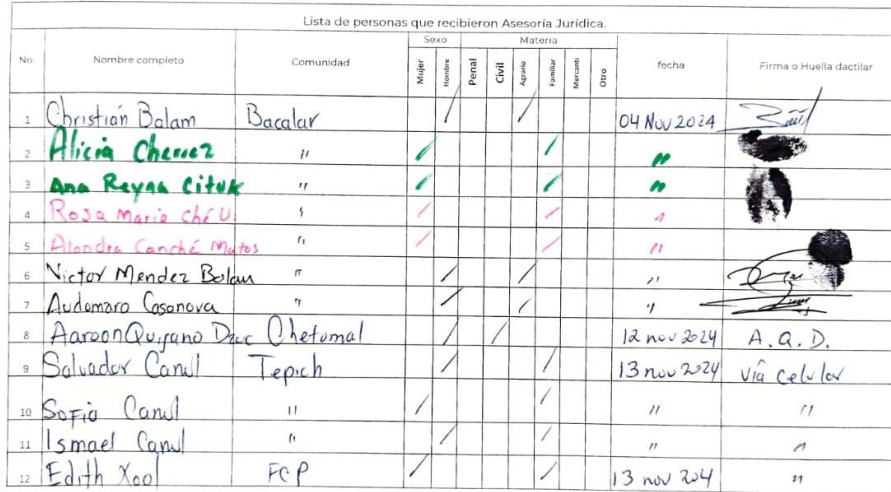 Lista de personas que recibieron Asesoría Jurídica.
Sexo Materia
No. Nombre completo Comunidad Mujer Hombre Penal Civil Agrario Familiar Mercanti Otro fecha Firma o Huella dactilar
1 Christián Balam Bacalar / / 04 Nov 2024
2 Alicia " / / "
3 Ana Reyna Cituk " / / "
4 Rosa Maria Ché U. " / / "
5 Alondra Canché Matos " / / "
6 Victor Mendez Balam " / / "
7 Audomaro Casanova " / / "
8 Aaroon Quijano Dzuc Chetumal / / 12 nov 2024 A. Q. D.
9 Salvador Canul Tepich / / 13 nov 2024 Vía celular
10 Sofia Canul " / / " "
11 Ismael Canul " / / " "
12 Edith Xool FCP / / 13 nov 204 "